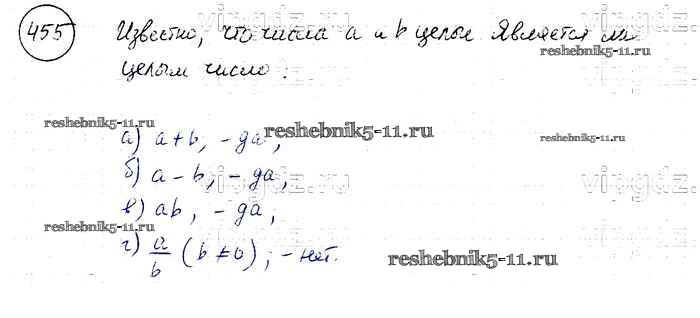 455 Известно, что числа a и b целые Является ли
целым число:
а) a+b, - да,
б) a-b, - да,
в) ab, - да,
г) a/b (b≠0), - нет.
reshebnik5-11.ru
reshebnik5-11.ru
reshebnik5-11.ru
reshebnik5-11.ru
reshebnik5-11.ru
reshebnik5-11.ru
vipgdz.com
vipgdz.com
vipgdz.com